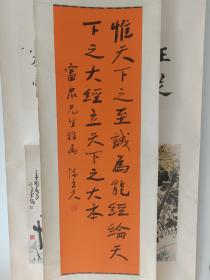 惟天下之至誠為能經綸天
下之大經立天下之大本
富泉先生雅屬 陳立夫